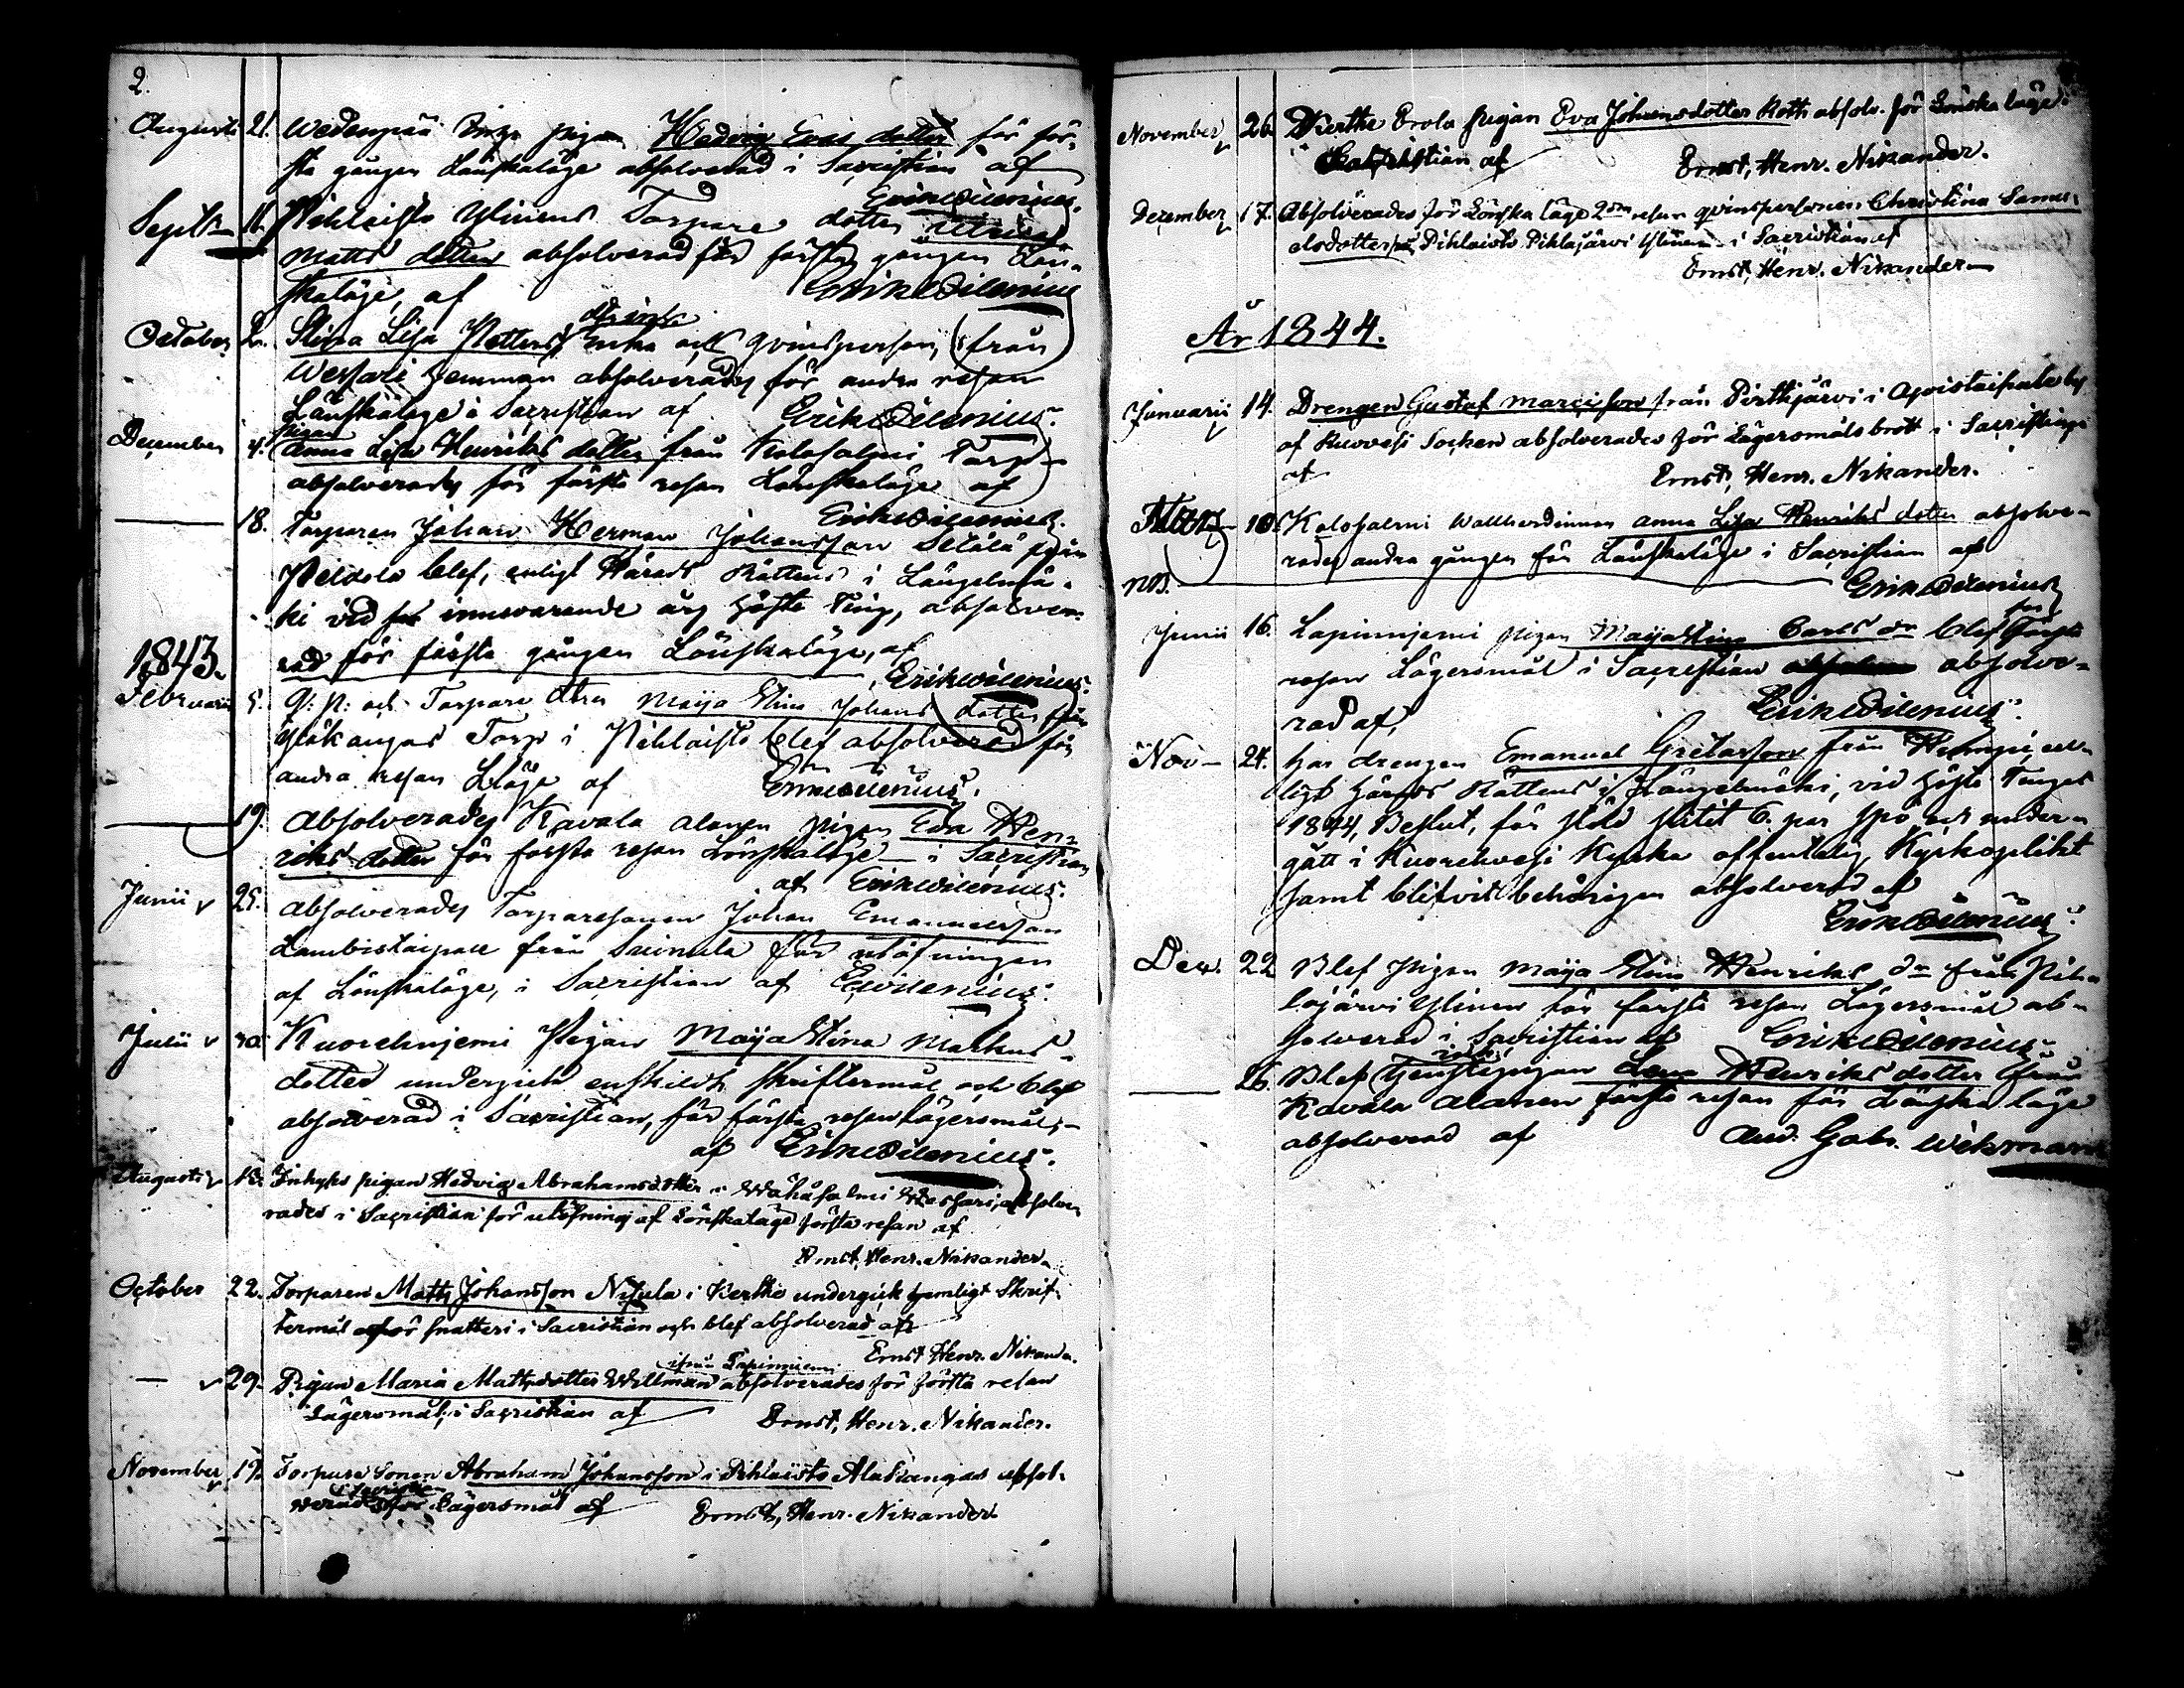 2.
Augusti 21. Wedenpää Inge pigan Hedvig Ers dotter för för-
sta gången Lönskaläge absolverad i Sacristian af
Erik Dilenius.
Septbr 11. Pihlaisto Ylinens Torpare dotter
Matts dotter absolverad för första gången Lön-
skaläge, af Erik Dilenius
October 2. Stina Lisa Petters dotter Enka och qvinsperson, från
Wessari hemman absolverades för andra resan
Lönskaläge i Sacristian af Erik Dilenius.
December 4. pigan Anna Lisa Henriks dotter från Kalasalmi Torp
absolverades för första resan Lönskaläge af
Erik Dilenius.
18. Torparen Johan Herman Johansson Setälä från
Peldola blef, enligt Härads Rättens i Längelmä-
ki vid innevarande års Höste Ting, absolve-
rad för första gången Lönskaläge, af
Erik Dilenius.
1843.
Februarii 5. Q: P: och Torpare dtren Maija Stina Johans dotter från
Ylökangas Torp i Pihlaisto blef absolverad för
andra resan Lläge af Erik Dilenius.
19. Absolverades Kavala Alanen pigan Eva Hen-
riks dotter för första resan Lönskaläge i Sacristian
af Erik Dilenius.
Junii 25. Absolverades Torparesonen Johan Emanuelsson
Lambistaipale från Suinula för utöfningen
af Lönskaläge, i Sacristian af E. Dilenius.
Julii 30. Kuorehnjemi Pigan Maija Stina Markus-
dotter undergick enskildt skriftermål och blef
absolverad i Sacristian, för första resan Lägersmål,
af Erik Dilenius.
Augusti 13. Inhyses pigan Hedvig Abrahamsdotter i Wähäsalmi Wessari, absolve-
rades i Sacristian för utöfning af Lönskaläge första resan af
Ernst, Henr. Nikander.
October 22. Torparen Matts Johansson Nisula i Kertte undergick hemligt Skrif-
termål för snatteri i Sacristian och blef absolverad af
Ernst Henr. Nikander.
29. Pigan Maria Mattsdotter Wellman ifrån Lapinniemi absolverades för första resan
Lägersmål i Sacristian af Ernst, Henr. Nikander.
November 19. Torpare Sonen Abraham Johansson i Pihlaisto Alakangas absol-
verades i Sacristian för Lägersmål af Ernst, Henr. Nikander
November 26. Kertte Erola pigan Eva Johansdotter Roth absolv. för Lönska läge i
Sacristian af Ernst, Henr. Nikander.
December 17. Absolverades för Lönska läge 2dra resan qvinspersonen Christina Samu-
elsdotter på Pihlaisto Pihlajärvi Ylinen i Sacristian af
Ernst, Henr. Nikander
År 1844.
Januarii 14. Drengen Gustaf Marcusson från Pirttijärvi i Apoistaipale by
af Ruovesi Socken absolverades för Lägersmåls brott i Sacristian
af Ernst, Henr. Nikander.
Mars 10. Kalasalmi Wallherdinnan Anna Lisa Henriks dotter absolve-
rades andra gången för Lönskaläge i Sacristian af
NB. Erik Dilenius
Junii 16. Lapinnjemi pigan Maija Stina Carls dr blef för första
resan Lägersmål i Sacristian absolve-
rad af, Erik Dilenius.
Nov 24. har drengen Emanuel Gretasson från Hemppi, en-
ligt Härads Rättens i Längelmäki, vid Höste Tinget
1844, Beslut, för stöld slitit 6. par spö och under-
gått i Kuorehvesi Kyrka offentelig Kyrkoplikt
samt blifvit behörigen absolverad af
Erik Dilenius.
Dec. 22 Blef pigan Maija Stina Henriks dr från Pih-
lajärvi Ylinen för första resan Lägersmål ab-
solverad i Sacristian af Erik Dilenius.
26. Blef tjenstepigan Lena Henriks dotter från
Kavala Alanen första resan för Lönska läge
absolverad af And. Gabr. Wikman